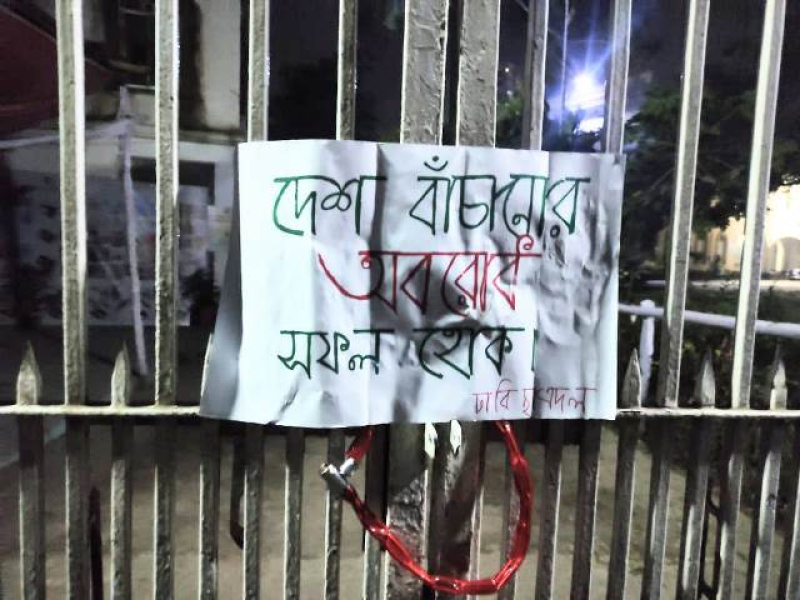 দেশ বাঁচানোর
অবরোধ
সফল হোক।
ঢাবি ছাত্রদল